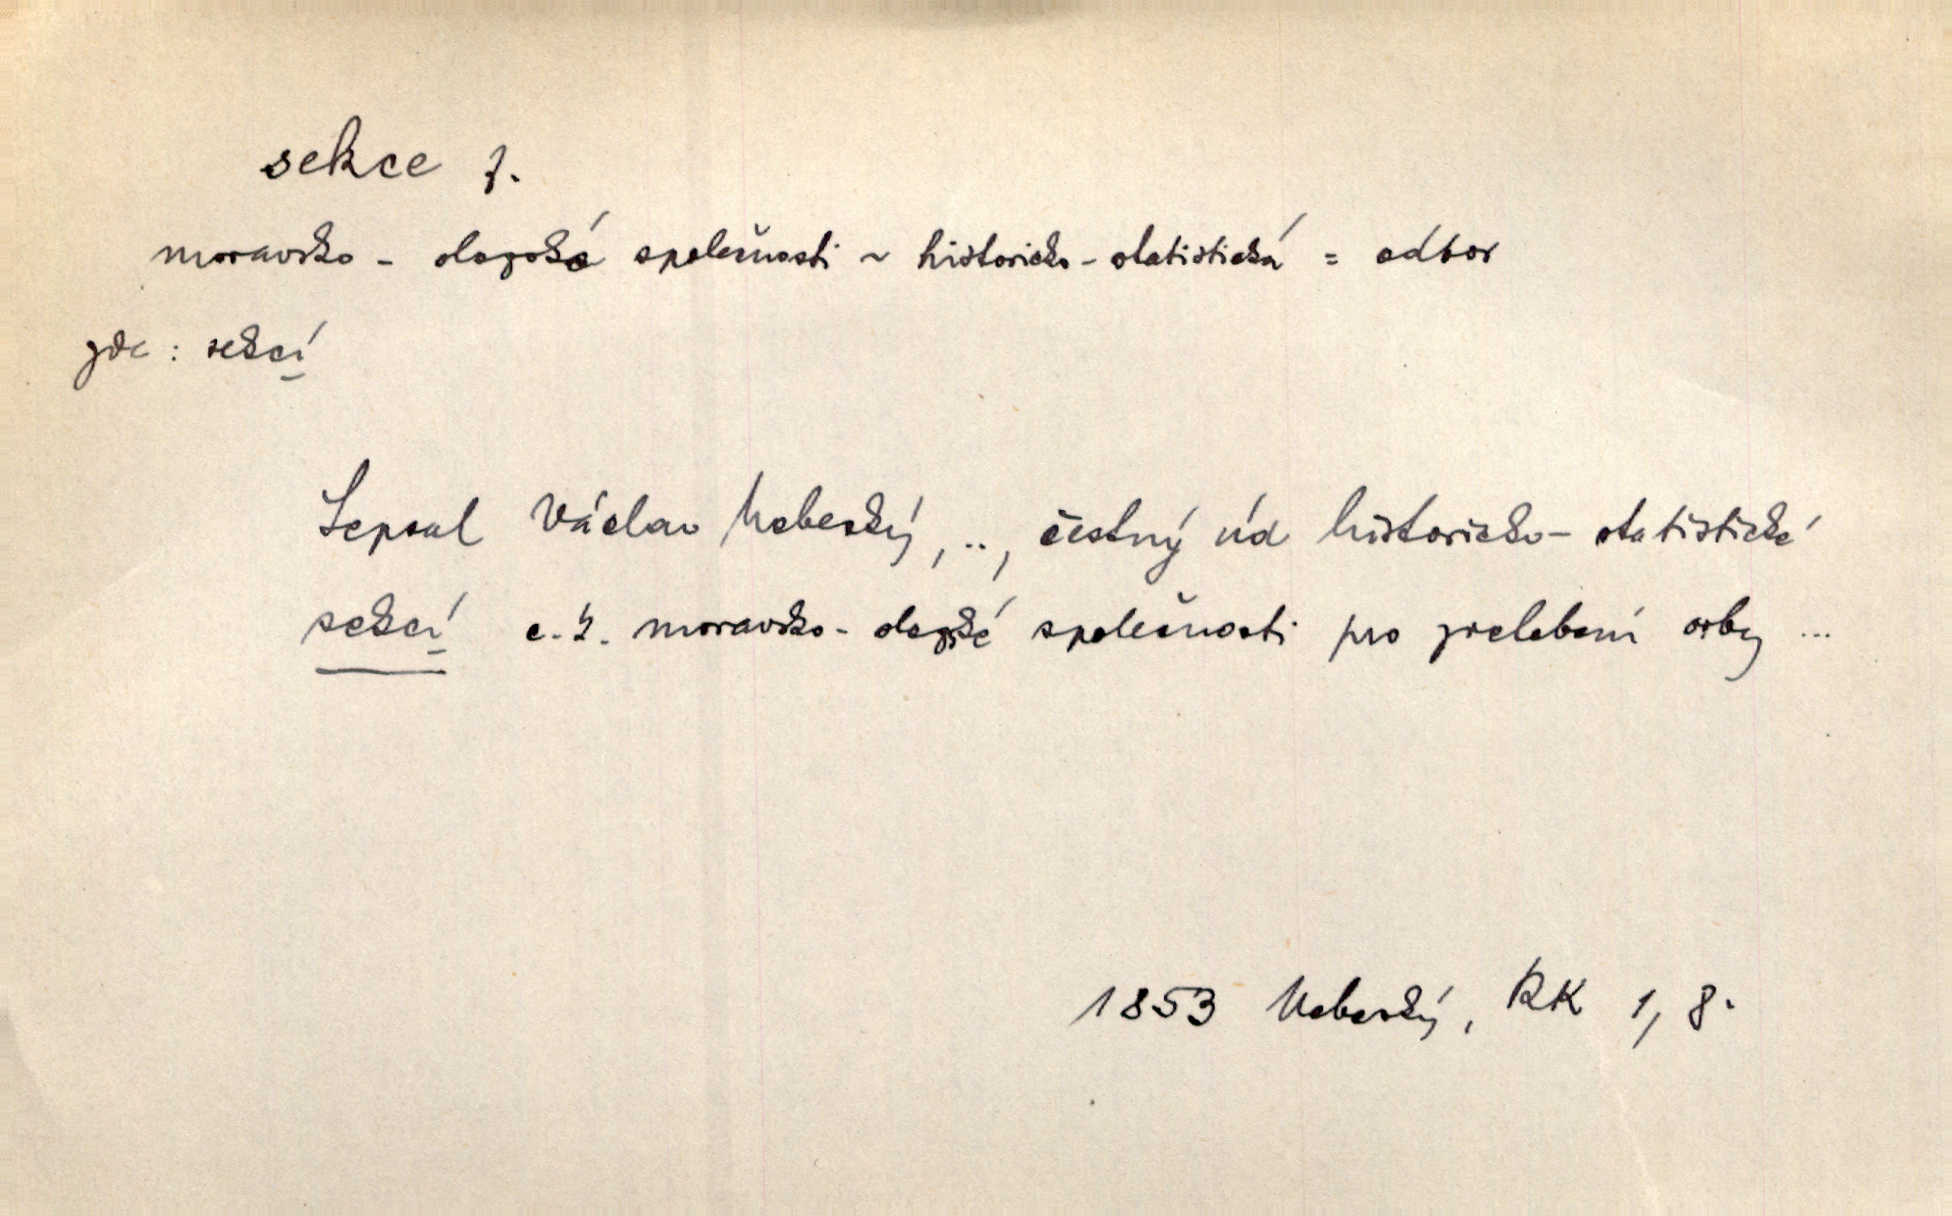 sekce f.
moravsko - slezské společnosti ~ historicko - statistická = odbor
zde : sekcí
Sepsal Václav Nebeský, .., čestný úd historicko - statistické
sekcí c. k. moravsko - slezské společnosti pro zvelebení orby ...
1853 Nebeský, RK 1, 8.